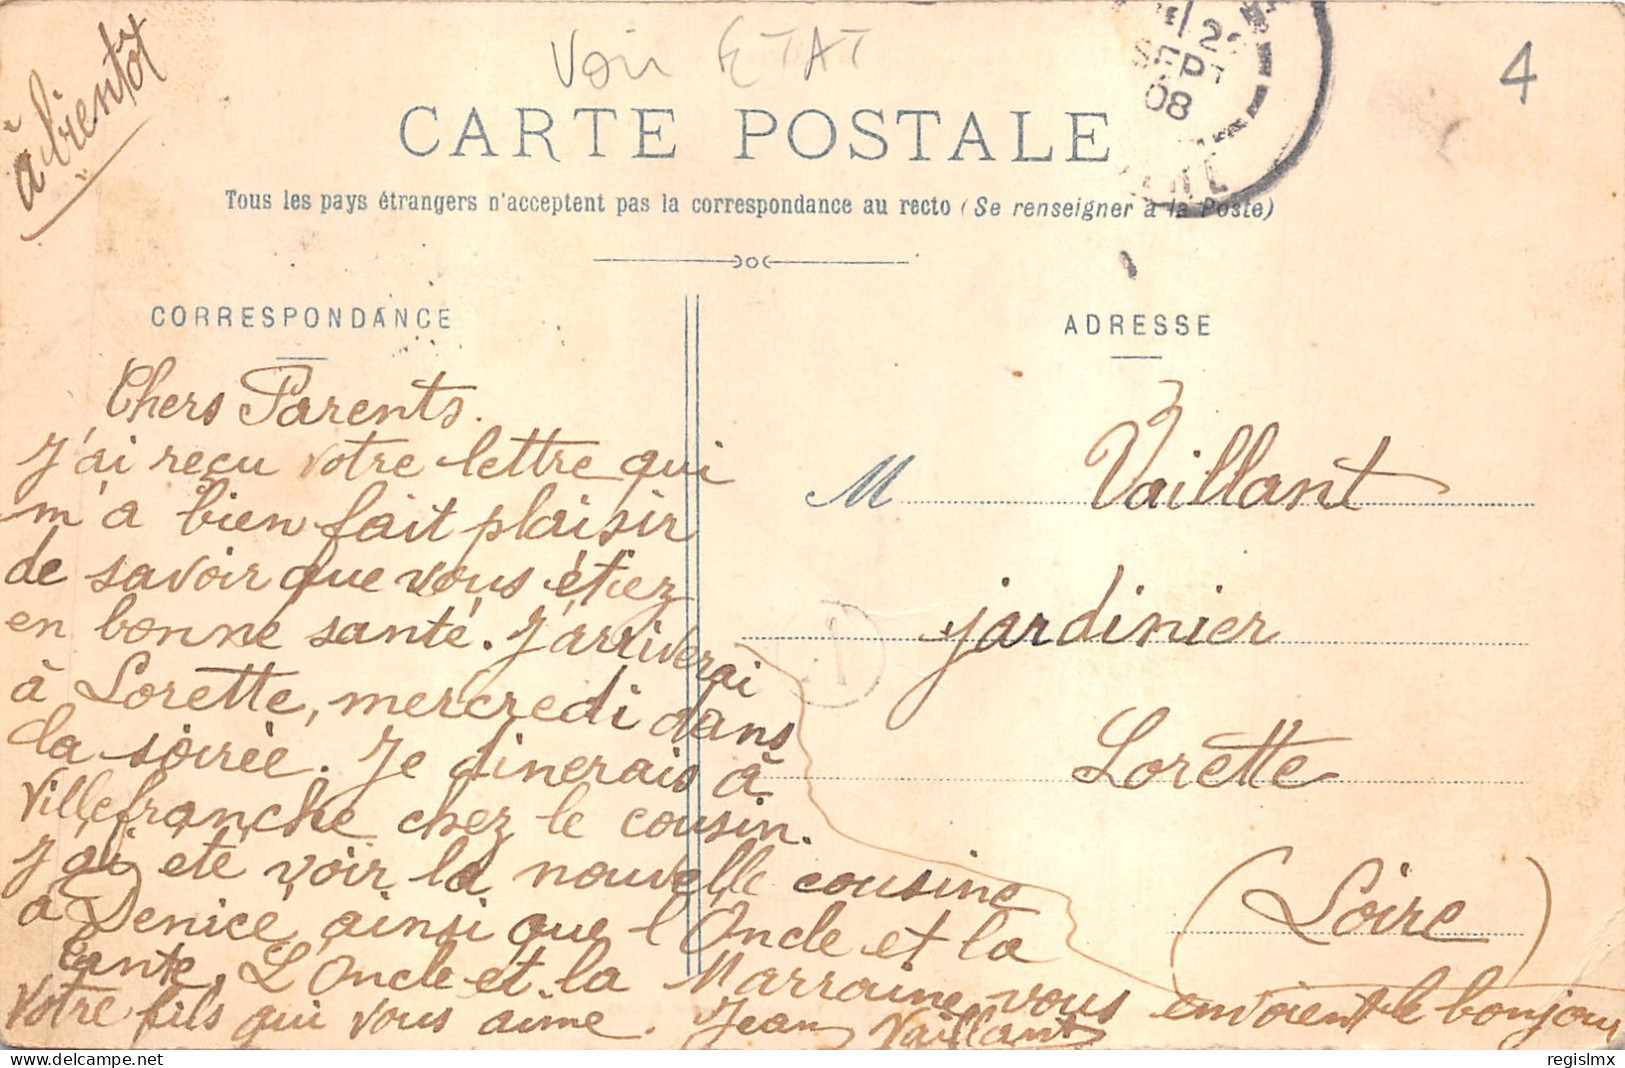 à bientôt
Voir ETAT
4
SEPT
08
CARTE POSTALE
Tous les pays étrangers n'acceptent pas la correspondance au recto (Se renseigner à la Poste)
CORRESPONDANCE
Chers Parents.
J'ai reçu votre lettre qui
m'a bien fait plaisir
de savoir que vous étiez
en bonne santé. J'arriverai
à Lorette, mercredi dans
la soirée. Je dinerais à
Villefranche chez le cousin.
J'ai été voir la nouvelle cousine
à Denicé, ainsi que l'Oncle et la
tante. L'Oncle et la Marraine vous envoient le bonjour
Votre fils qui vous aime. Jean Vaillant
ADRESSE
M Vaillant
jardinier
Lorette
(Loire)
regislmx